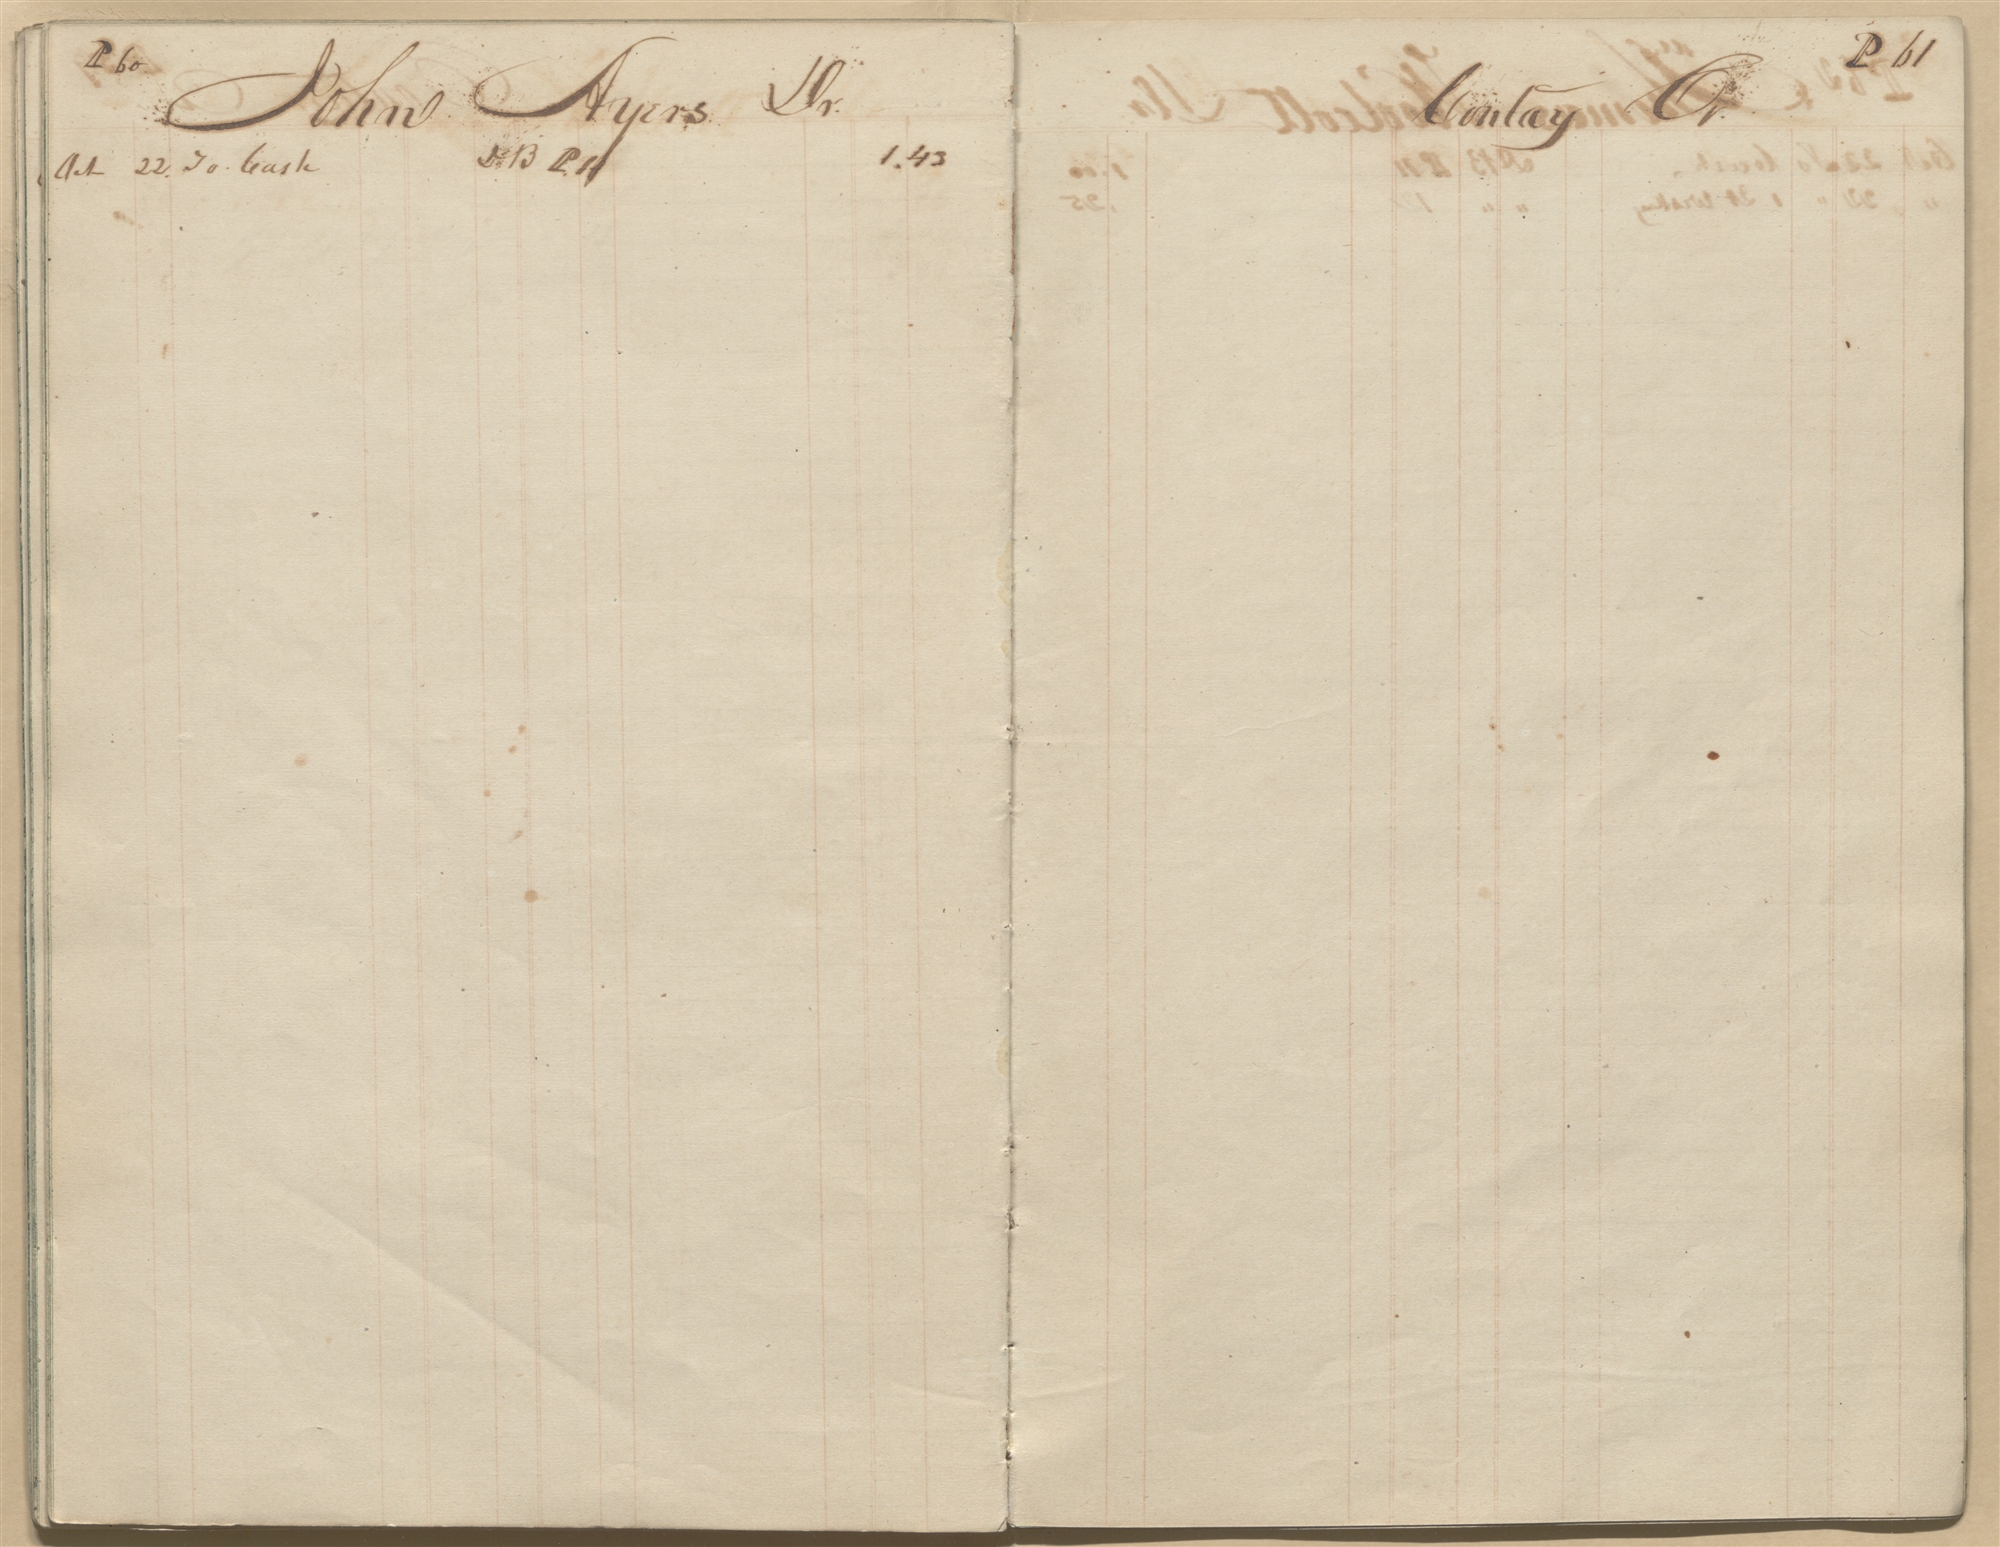 P 60
John Ayers Dr.
Oct 22. To. Cash D. B P. 11 1.43
P 61
Contay Cr.